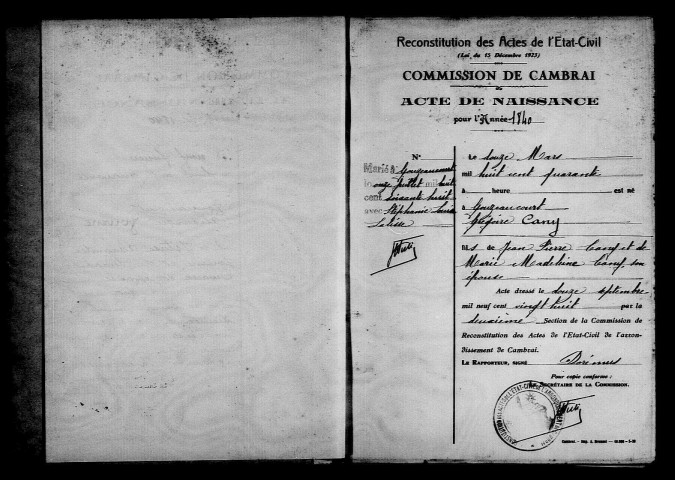 Reconstitution des Actes de l'Etat-Civil
(Loi du 15 Décembre 1923)
COMMISSION DE CAMBRAI
ACTE DE NAISSANCE
pour l'Année 1840
N°
Marié à Gouzeaucourt
le onze Juillet mil huit
cent soixante huit
avec Stéphanie
Le douze Mars
mil huit cent quarante
à heure est né
à Gouzeaucourt
Grégoire Cany
fils de Jean Pierre Cany et de
Marie Madeleine Camp, son
épouse
Acte dressé le douze septembre
mil neuf cent vingt huit par la
deuxième Section de la Commission de
Reconstitution des Actes de l'Etat-Civil de l'arron-
dissement de Cambrai.
LE RAPPORTEUR, SIGNÉ Dorémus
Pour copie conforme :
LE SECRÉTAIRE DE LA COMMISSION.